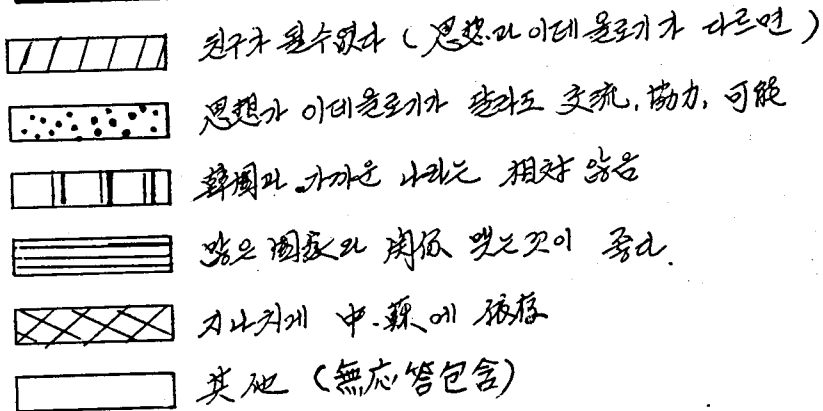 친구가 될수없다 (思想과 이데올로기가 다르면)
思想과 이데올로기가 달라도 交流, 協力, 可能
韓國과 가까운 나라는 相対 않음
많은 國家와 関係 맺는것이 좋다.
지나치게 中.蘇에 依存
其他 (無応答包含)